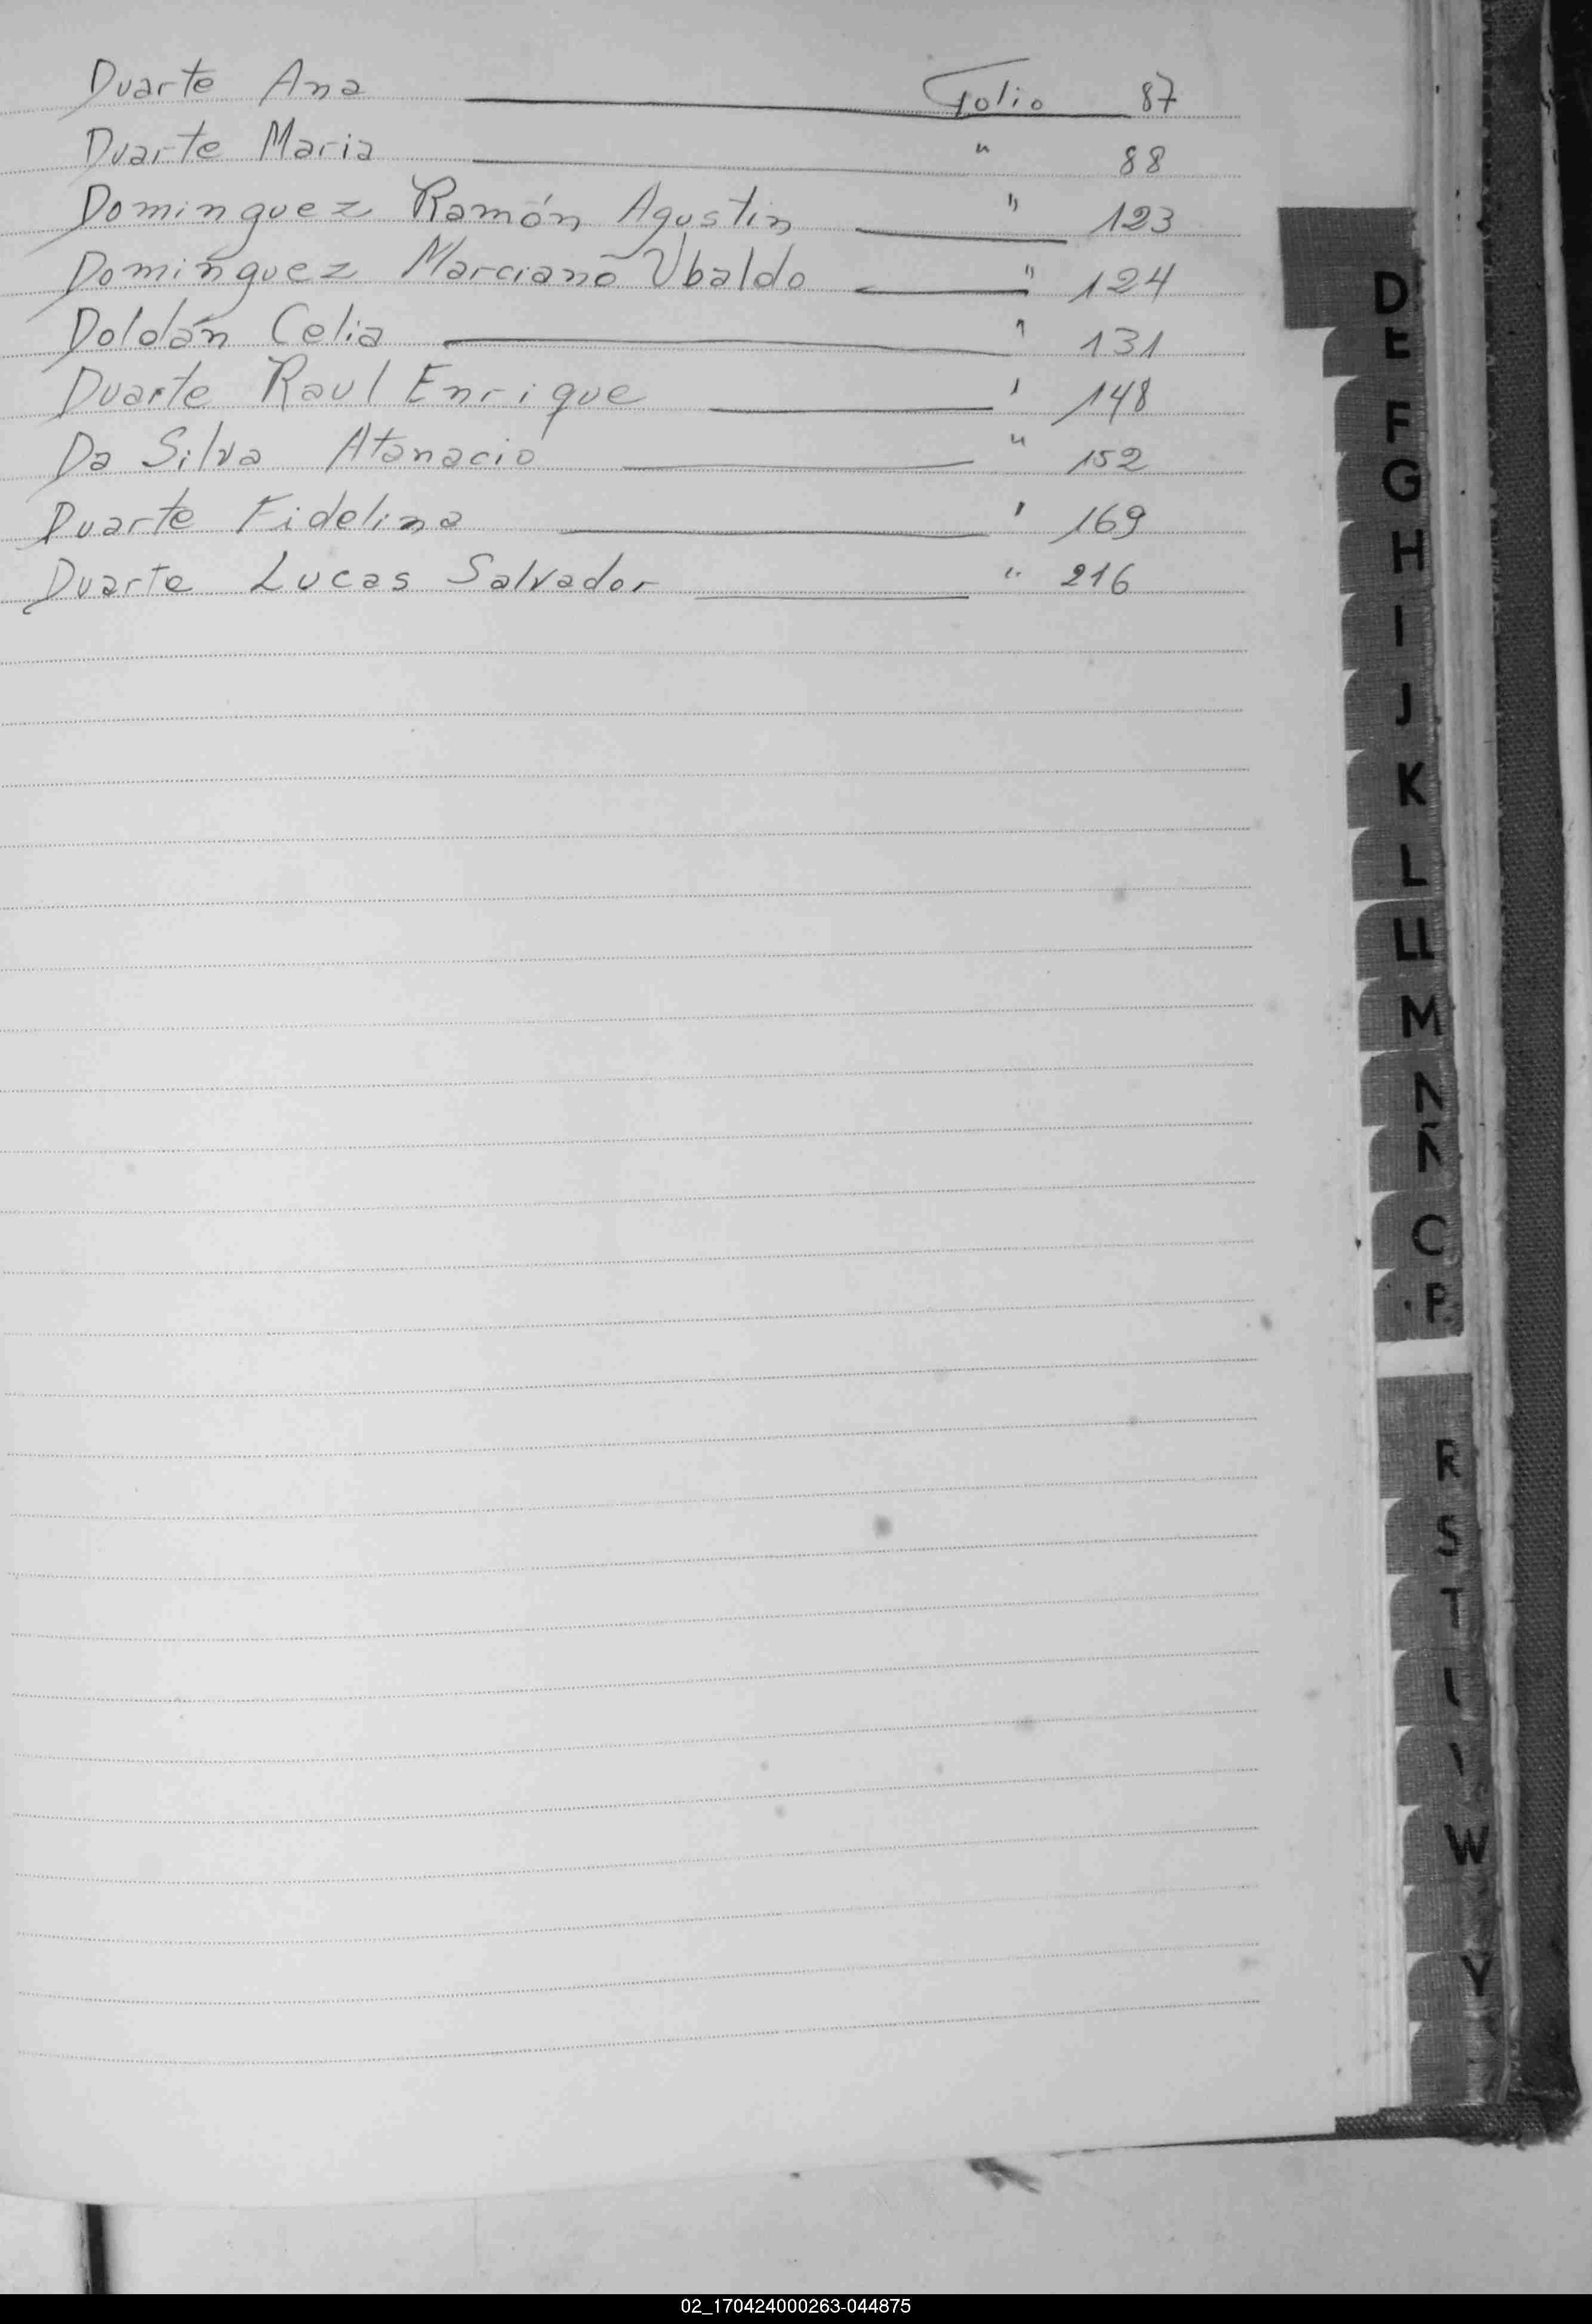 Duarte Ana Folio 87
Duarte Maria " 88
Dominguez Ramón Agustin " 123
Dominguez Marciano Ubaldo " 124
Doldán Celia " 131
Duarte Raul Enrique " 148
Da Silva Atanacio " 152
Duarte Fidelina " 169
Duarte Lucas Salvador " 216
D
E
F
G
H
I
J
K
L
M
P
R
S
W
Y
02_170424000263-044875